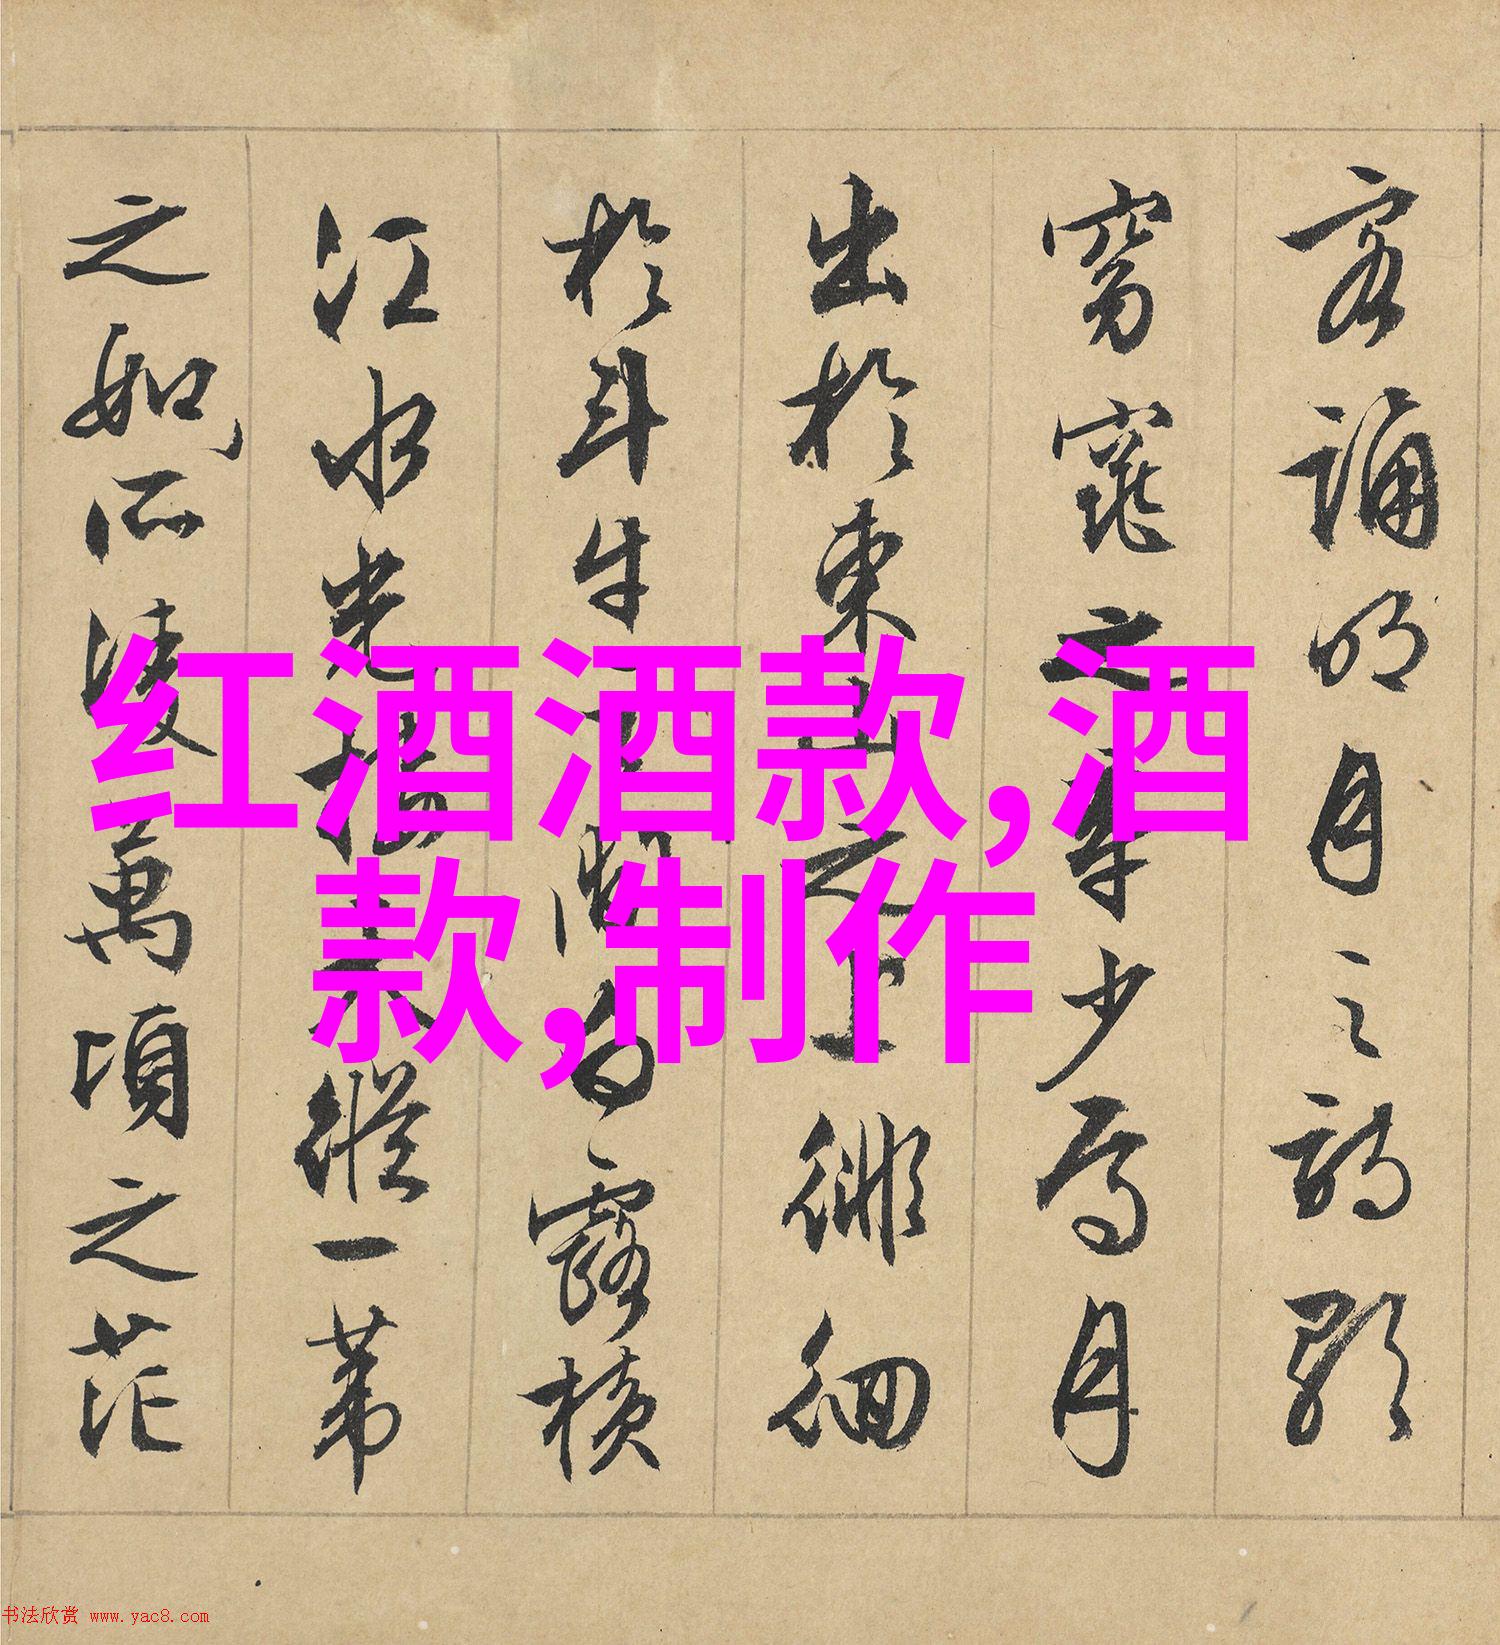 客誦明月之詩歌
窈窕之章少焉月
出於東山之上徘徊
於斗牛之間白露橫
江水光接天縱一葦
之如所淩萬頃之茫
红酒酒款,酒
款,制作
书法欣赏 www.yac8.com